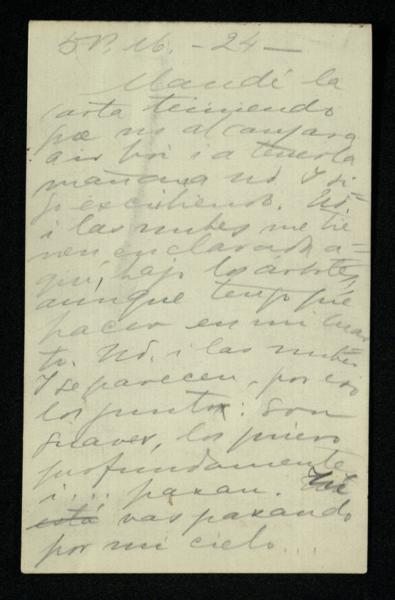 5 P. M. - 24 -
Mandé la
carta temiendo
que no alcanzara
aún hoi i a tenerla
mañana no. I si-
go escribiendo. Ud.
i las nubes me tie-
nen enclavada a-
quí, bajo los árboles,
aunque tengo que
hacer en mi cuar-
to. Ud. i las nubes
I se parecen, por eso
los junto: son
suaves, los quiero
profundamente
i.... pasan. Ud.
está vas pasando
por mi cielo...